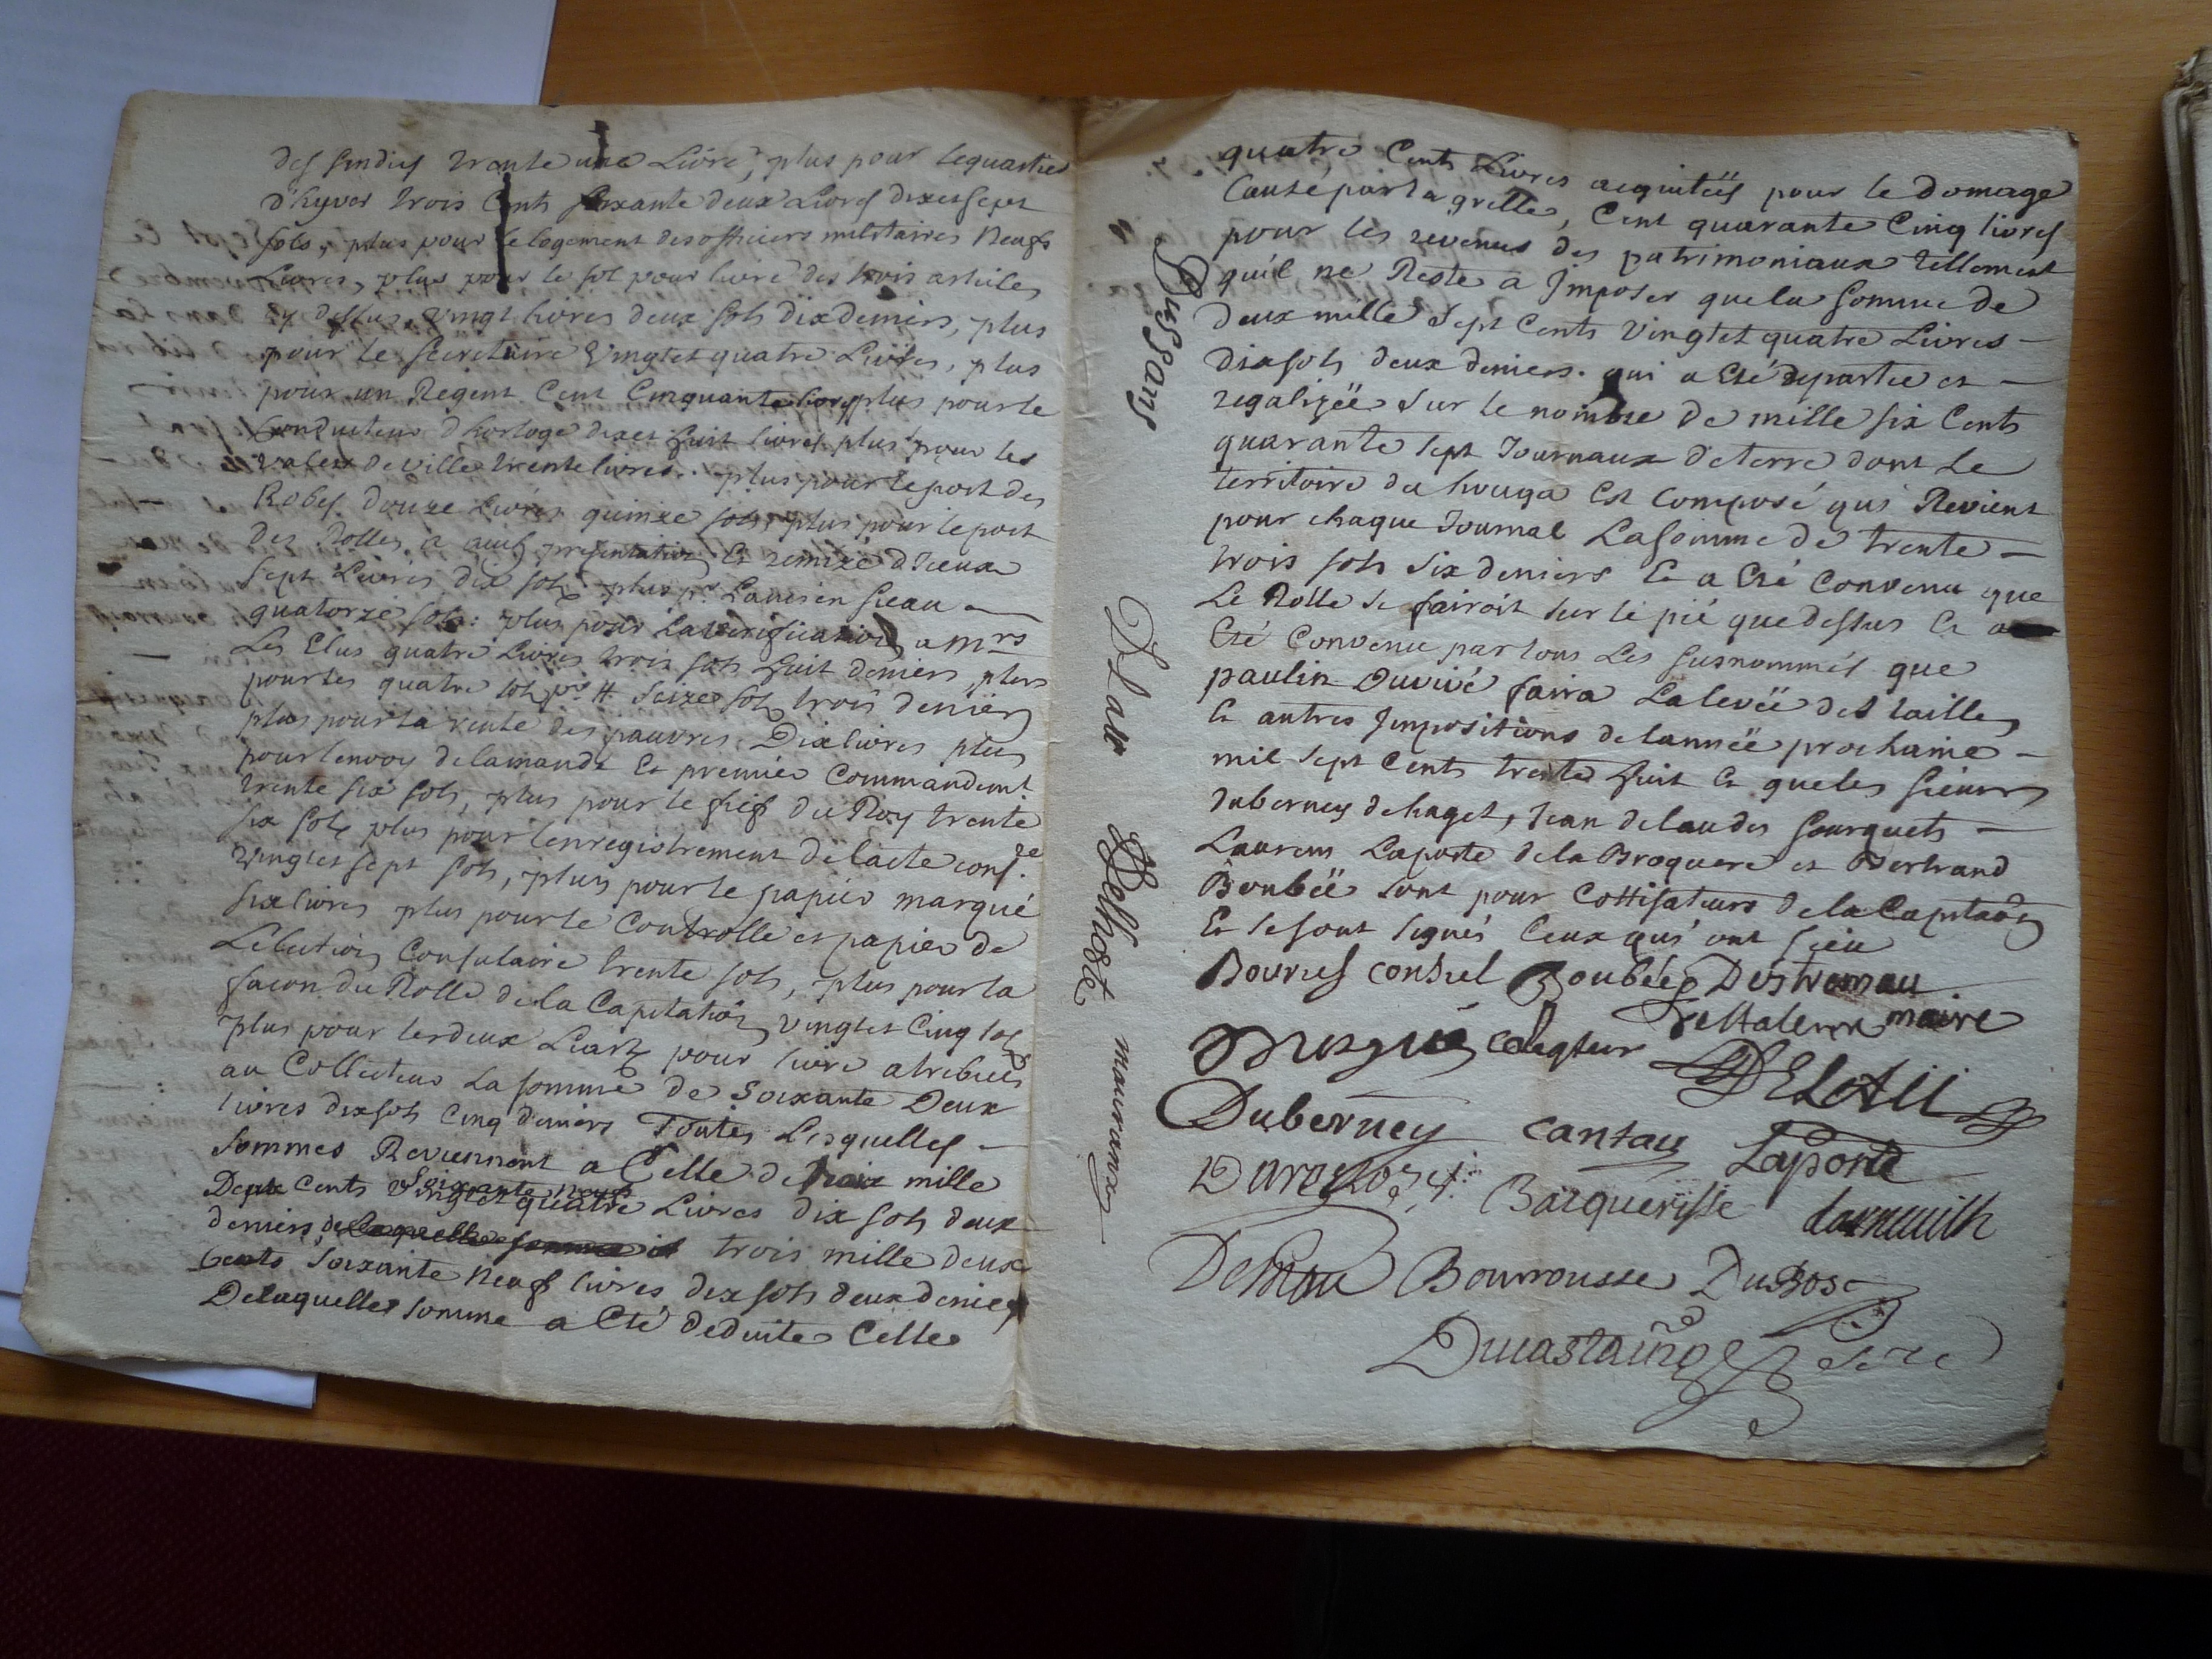 des sindics trente une Livre, plus pour le quartier
d'hyver trois Cents soixante deux Livres dix et sept
sols, plus pour le logement des officiers militaires neufs
Livres, plus pour le sol pour livre des trois articles
cy dessus, vingt livres deux sols dix deniers, plus
pour le secretaire vingt et quatre Livres, plus
pour un Regent Cent Cinquante livres plus pour le
Conducteur d'horloge dix et huit livres plus pour les
valets de ville trente livres. plus pour le port des
Robes douze Livres quinze sols, plus pour le port
des Rolles a auch presentation et remise d'iceux
sept Livres dix sols plus pr. Lamisen sceau —
quatorze sols: plus pour la verification a Mrs
Les Elus quatre Livres trois sols huit deniers plus
pour les quatre sols pr. tt seize sols trois deniers
plus pour la rente des pauvres Dix livres plus
pour lenvoy de lamande et premier Commandemt
trente six sols, plus pour le fief du Roy trente
six sols plus pour l'enregistrement de lacte cons.re
vingt et sept sols, plus pour le papier marqué
six livres plus pour le Controlle et papier de
Lelection Consulaire trente sols, plus pour la
facon du Rolle de la Capitation vingt et Cinq sols
plus pour les deux Liarts pour livre atribués
au Collecteur La somme de Soixante Deux
livres dix sols Cinq deniers Toutes Lesquelles —
Sommes Reviennent a Celle de trois mille
Soixante neufs
Deux Cents vingt et quatre Livres dix sols deux
deniers, de laquelle somme il trois mille deux
Cents soixante neuf livres dix sols deux deniers
De laquelle somme a Eté deduite Celle
quatre Cents Livres acquitéés pour le domage
Causé par la grelle, Cent quarante Cinq livres
pour les revenus des patrimoniaux tellement
qu'il ne Reste a Imposer que la somme de
deux mille sept Cents vingt et quatre Livres —
dix sols deux deniers. qui a Eté departie et —
regalizéé sur le nombre de mille six Cents
quarante sept Journaux de terre dont Le
territoire du houga Est Composé qui Revient
pour chaque Journal La somme de trente —
trois sols six deniers Et a Eté Convenu que
Le Rolle se fairoit sur le pié que dessus Et a
Eté Convenu par tous Les susnommés que
paulin Duvivé faira La levéé des tailles
Et autres Impositions de lannéé prochaine —
mil sept Cents trente huit Et que les sieurs
duberney de haget, Jean delaudes Sourquets —
Laurens Laporte de la Broquere et Bertrand
Boubéé sont pour Cottisateurs de la Capitaon
Et se sont signés Ceux qui ont sceu
Bouries consul Boubée Destremau
maire
colegteur DELAU
Duberney cantau Laporte
Barquerisse
Bourrousse DuBosc
Ducastaing
Dussans
Delhoste
mauranx